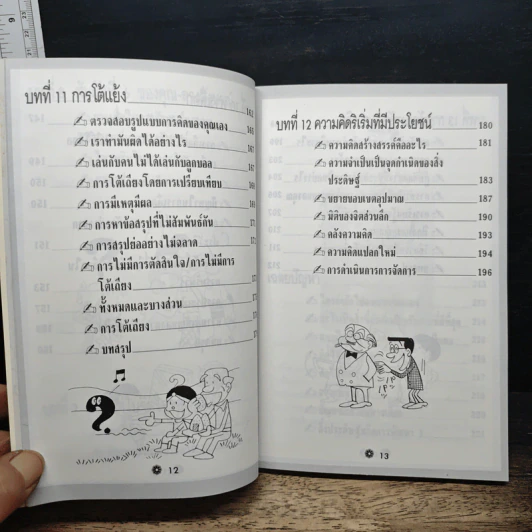 บทที่ 11 การโต้แย้ง
ตรวจสอบรูปแบบการคิดของคุณเอง
เราทำมันผิดได้อย่างไร
เล่นกับคนไม่ได้เล่นกับลูกบอล
การโต้เถียงโดยการเปรียบเทียบ
การมีเหตุมีผล
การหาข้อสรุปที่ไม่สัมพันธ์กัน
การสรุปย่ออย่างไม่ฉลาด
การไม่มีการตัดสินใจ/การไม่มีการ
โต้เถียง
ทั้งหมดและบางส่วน
การโต้เถียง
บทสรุป
12
บทที่ 12 ความคิดริเริ่มที่มีประโยชน์ 180
ความคิดสร้างสรรค์คืออะไร 181
ความจำเป็นเป็นจุดกำเนิดของสิ่ง
ประดิษฐ์ 183
ขยายขอบเขตอุปมาณ 187
มิติของจิตส่วนลึก 190
คลังความคิด 193
ความคิดแปลกใหม่ 194
การดำเนินการการจัดการ 196
13